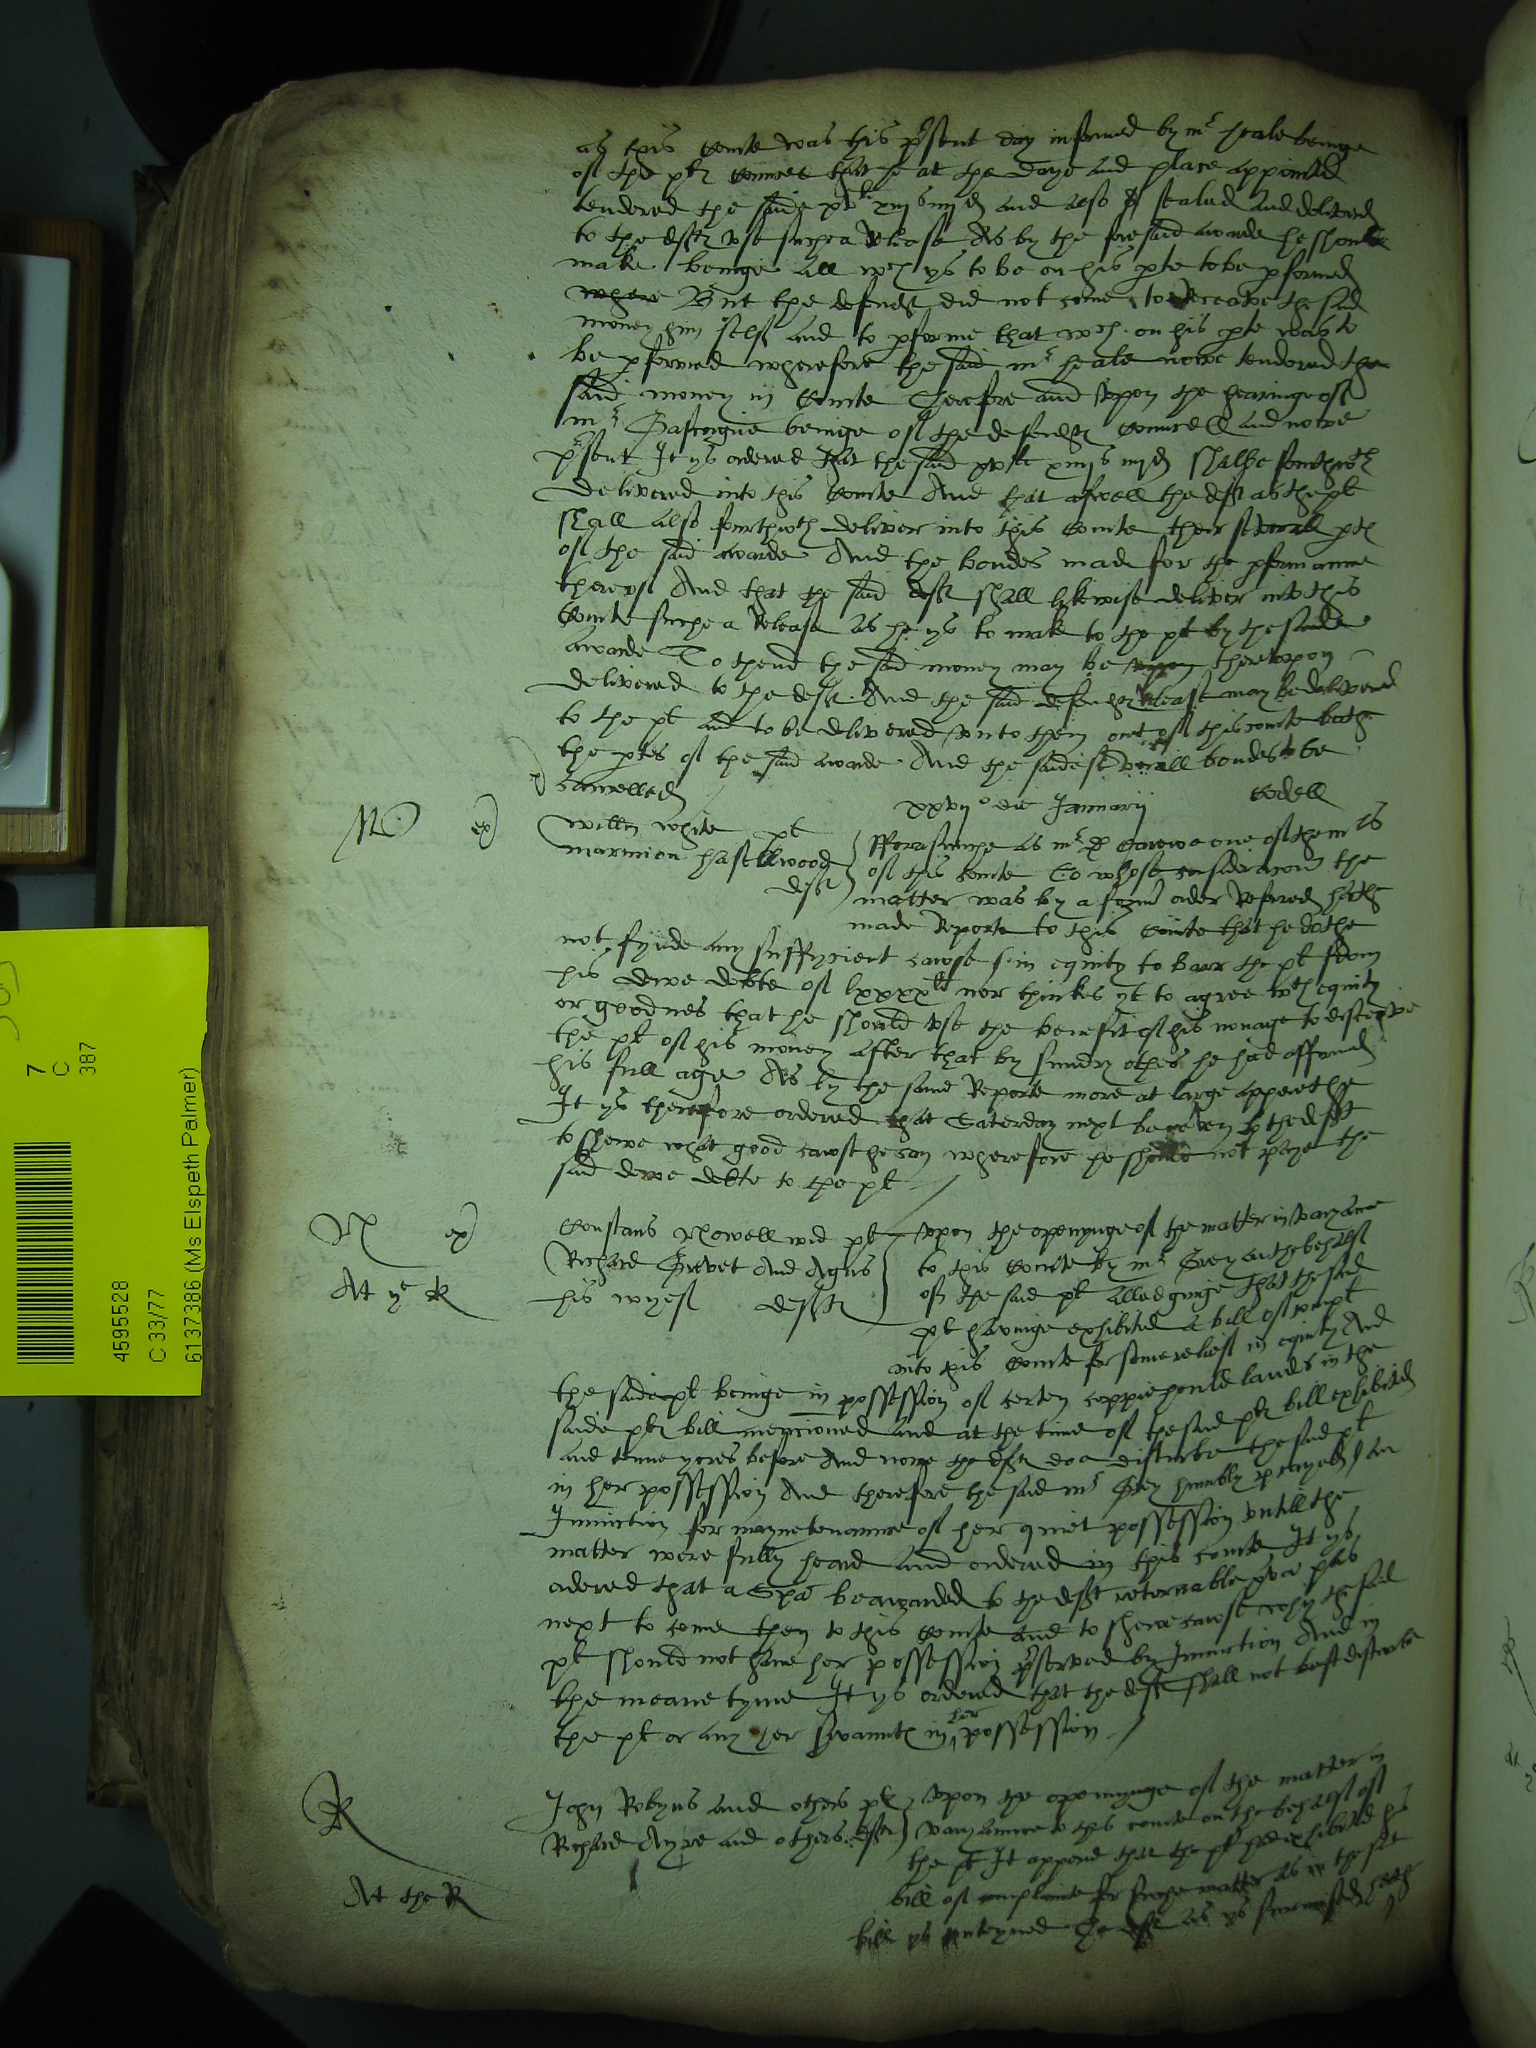 as this Courte was this p'sent day informed by mr heale beinge
of the pltes Councell that he at the daye and place appointed
tendered the saide xvli xiijs iiijd and also sealed and delivered
to the deftes vse suche a Release As by the foresaid awarde he should
make beinge All wch ys to be on his pte to be pformed
where But the defendt did not come to Receave the said
money him self and to pforme that wch on his pte was to
be pformed wherefore the said mr heale nowe tendered the
said money in Courte Therefore and vpon the hearinge of
mr Gascoigne beinge of the defendtes Councell and nowe
p'sent It ys ordered that the said xvli xiijs iiijd shalbe forthwth
delivered into this Courte And that aswell the deft as the plt
shall also fourthwth deliver into this Courte their severall ptes
of the said awarde And the bondes made for the pformance
thereof And that the said deft shall likewise deliver into this
Courte suche a Release as he ys to make to the plt by the saide
awarde To thend the said money may be vpon therevpon
delivered to the deft And the said defendtes Release may be delivered
to the plt and to be delivered vnto them out of this courte bothe
the ptes of the said awarde And the saide severall bondes to be
cancelled
xxvijo die Januarij Cordell
Willm White plt
Marmion Haselwood
deft
fforasmuche as mr D Carewe one of the mrs
of this Courte To whose consideracon the
matter was by a formr order Referred hathe
made Reporte to this Courte that he dothe
not fynde any suffycient cawse in equity to barr the plt from
his dewe debte of lxxxxli nor thinkes yt to agree wth equity
or goodnes that he should vse the benefit of his nonage to disceyve
the plt of his money after that by sundry othes he had affirmed
his full age As by the same Reporte more at large appereth
It ys therefore ordered that Saterday next be geven to the deft
to shewe what good cawse he can wherefore he should not paye the
said dewe debte to the plt
Constans Rowell wid plt
Richard Grevet And Agnis
his wyef deftes
At ye R
vpon the openynge of the matter in varyance
to this Courte by mr Grey on the behalf
of the said plt alledginge that the said
plt havinge exhibited a bill of complt
into this Courte for some relief in equity And
the saide plt beinge in possession of certen coppiehould lands in the
saide pltes bill mencioned and at the time of the said pltes bill exhibited
and tenne yeres before And nowe the deftes doe disturbe the said plt
in her possession And therefore the said mr Grey humbly prayed an
Iniunction for mayntenaunce of her quiet possession vntill the
matter were fully heard and ordered in this courte It ys
ordered that a Spa be awarded to the deft retornable
next to come then to this Courte and to shewe cawse why the said
plt should not have her possession p'served by Iniunction And in
the meane tyme It ys ordered that the deft shall not disturbe
the plt or any her servauntes in her possession
John Robyns and others pltes
Richard Ayre and others deftes
At the R
vpon the openynge of the matter in
varyaunce to this courte on the behalf of
the plt It appered that the plt had exhibited his
bill of complainte for suche matter as in the said
bill ys conteyned The deft as ys surmised hathe
7
C
387
4595528
C 33/77
6137386 (Ms Elspeth Palmer)